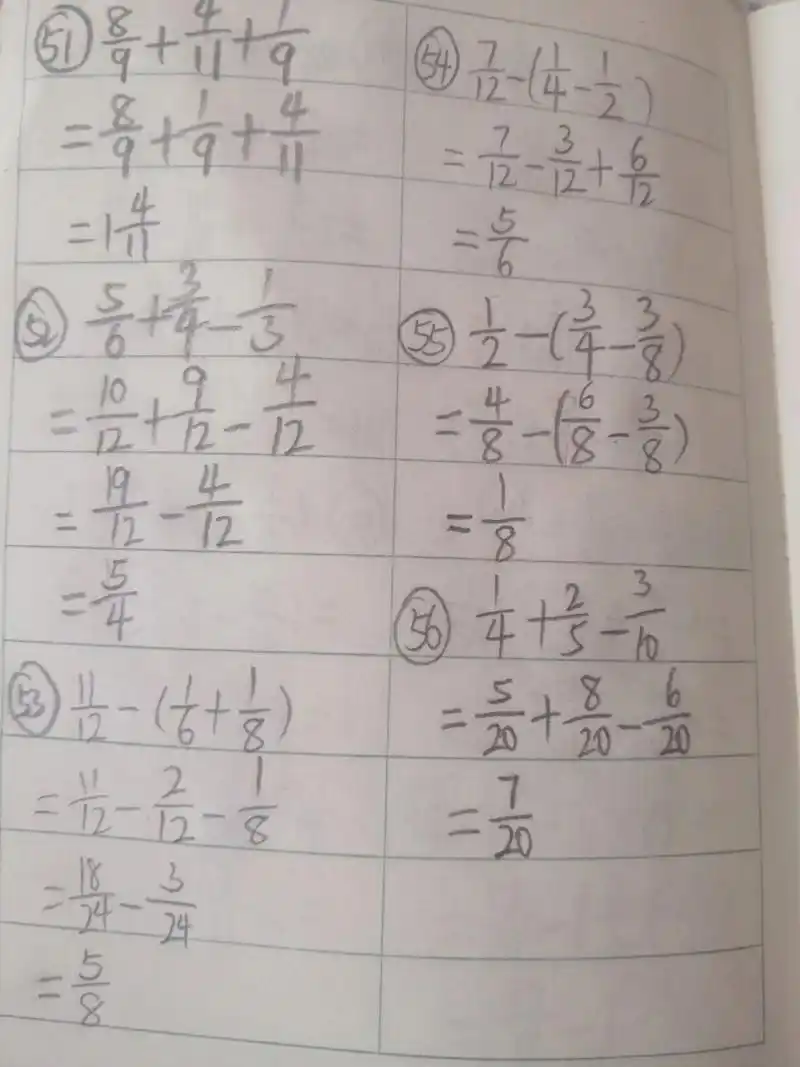 51 8/9 + 4/11 + 1/9
= 8/9 + 1/9 + 4/11
= 1 4/11
52 5/6 + 3/4 - 1/3
= 10/12 + 9/12 - 4/12
= 19/12 - 4/12
= 5/4
53 11/12 - (1/6 + 1/8)
= 11/12 - 2/12 - 1/8
= 18/24 - 3/24
= 5/8
54 7/12 - (1/4 - 1/2)
= 7/12 - 3/12 + 6/12
= 5/6
55 1/2 - (3/4 - 3/8)
= 4/8 - (6/8 - 3/8)
= 1/8
56 1/4 + 2/5 - 3/10
= 5/20 + 8/20 - 6/20
= 7/20